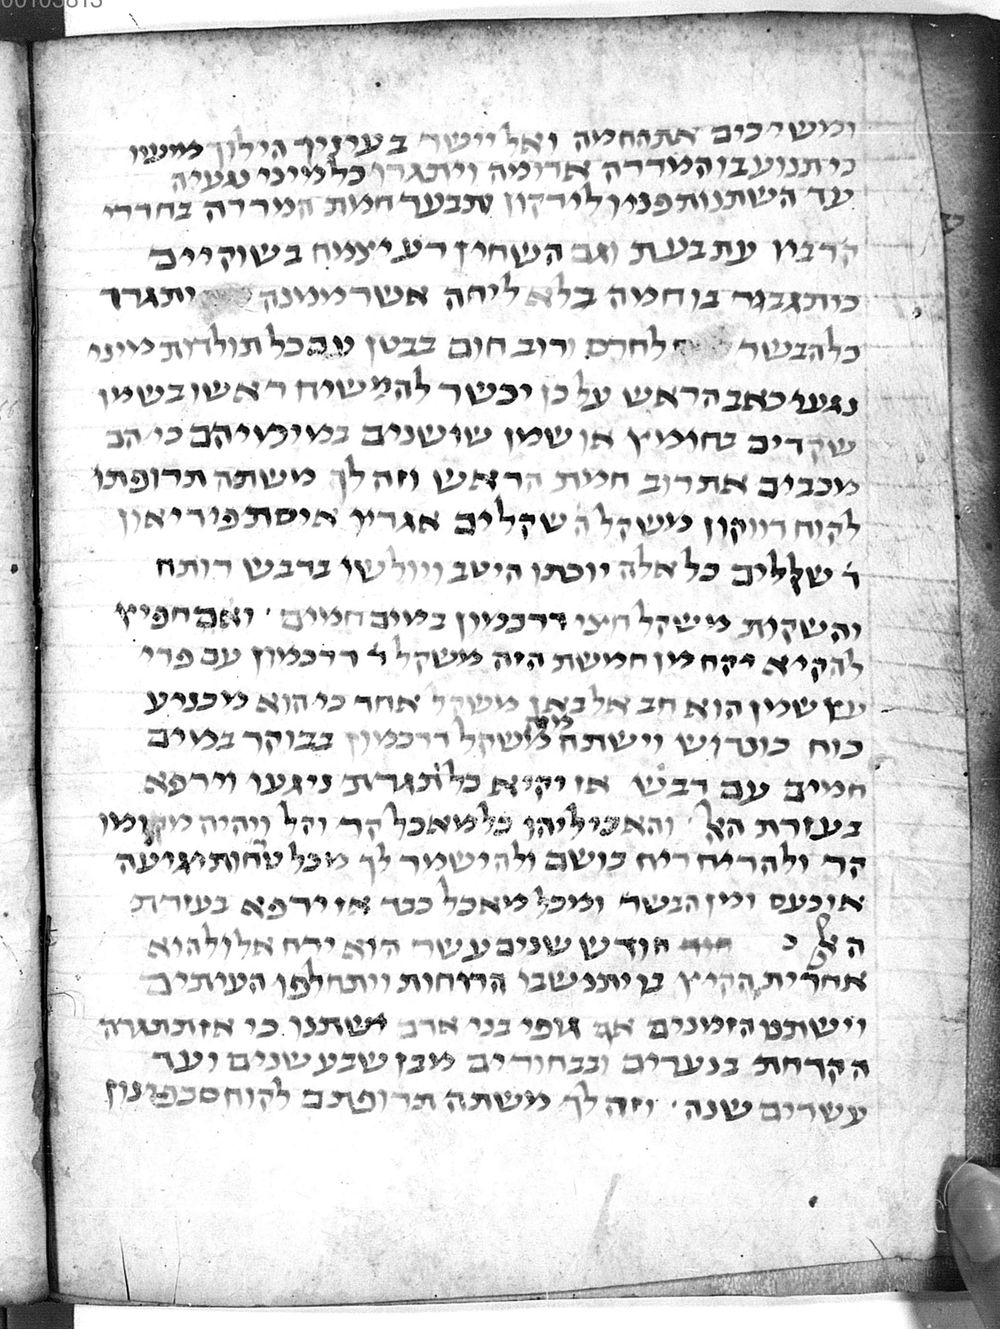 ומשרכים את החמה ואל יישר בעיניך הילוך מעט
כי תנוע בו המררה אדומה ויתגרו כל מיני נגעיה
עד השתנות פניו לירקון ותבער חמת המררה בחדרי
קרביו עת בעת וגם השחין רע יצמח בשוקיים
כותגבגר בו חמה בלא ליחה אשר ממנה יתגרד
כל הבשר לחרס ורוב חום בבטן עם כל תולדות מיני
נגעי כאב הראש על כן יכשר להמשיח ראשו בשמן
שקדים בחומץ או שמן שושנים במימיהם כי הם
מכבים את רוב חמת הראש וזה לך משתה תרופתו
לקוח דווקון משקל ה שקלים אגריק איסת פוריאון
ו שקלים כל אלה יוכתו היטב ויולשו בדבש רותח
והשקית משקל חצי דרכמון במים חמים ואם חפיץ
להקיא יקח מן חמשת הזה משקל ו דרכמון עם פרי
עץ שמן הוא חב אלבאן משקל אחד כי הוא מכניע
כוח כונדוש וישתה ממנה משקל דרכמון בבוקר במים
חמים עם דבש אז יקיא כל תגרת ניגעו וירפא
בעזרת האל והאכיליהו כל מאכל קר וקל ויהיה מקומו
קר ולהריח ריח בושם ולהישמר לך מכל טחות ויגיעה
או כעס ומן הבשר ומכל מאכל כבד אז ירפא בעזרת
האל חודש שנים עשר הוא ירח אלול הוא
אחרית הקיץ בו יתנשבו הרוחות ויתחלפו העיתים
וישתנו הזמנים אף גופי בני אדם ישתנו כי אז תתגרה
הקדחת בנערים ובבחורים מבן שבע שנים ועד
עשרים שנה וזה לך משתה תרופתם לקוח סכפינון